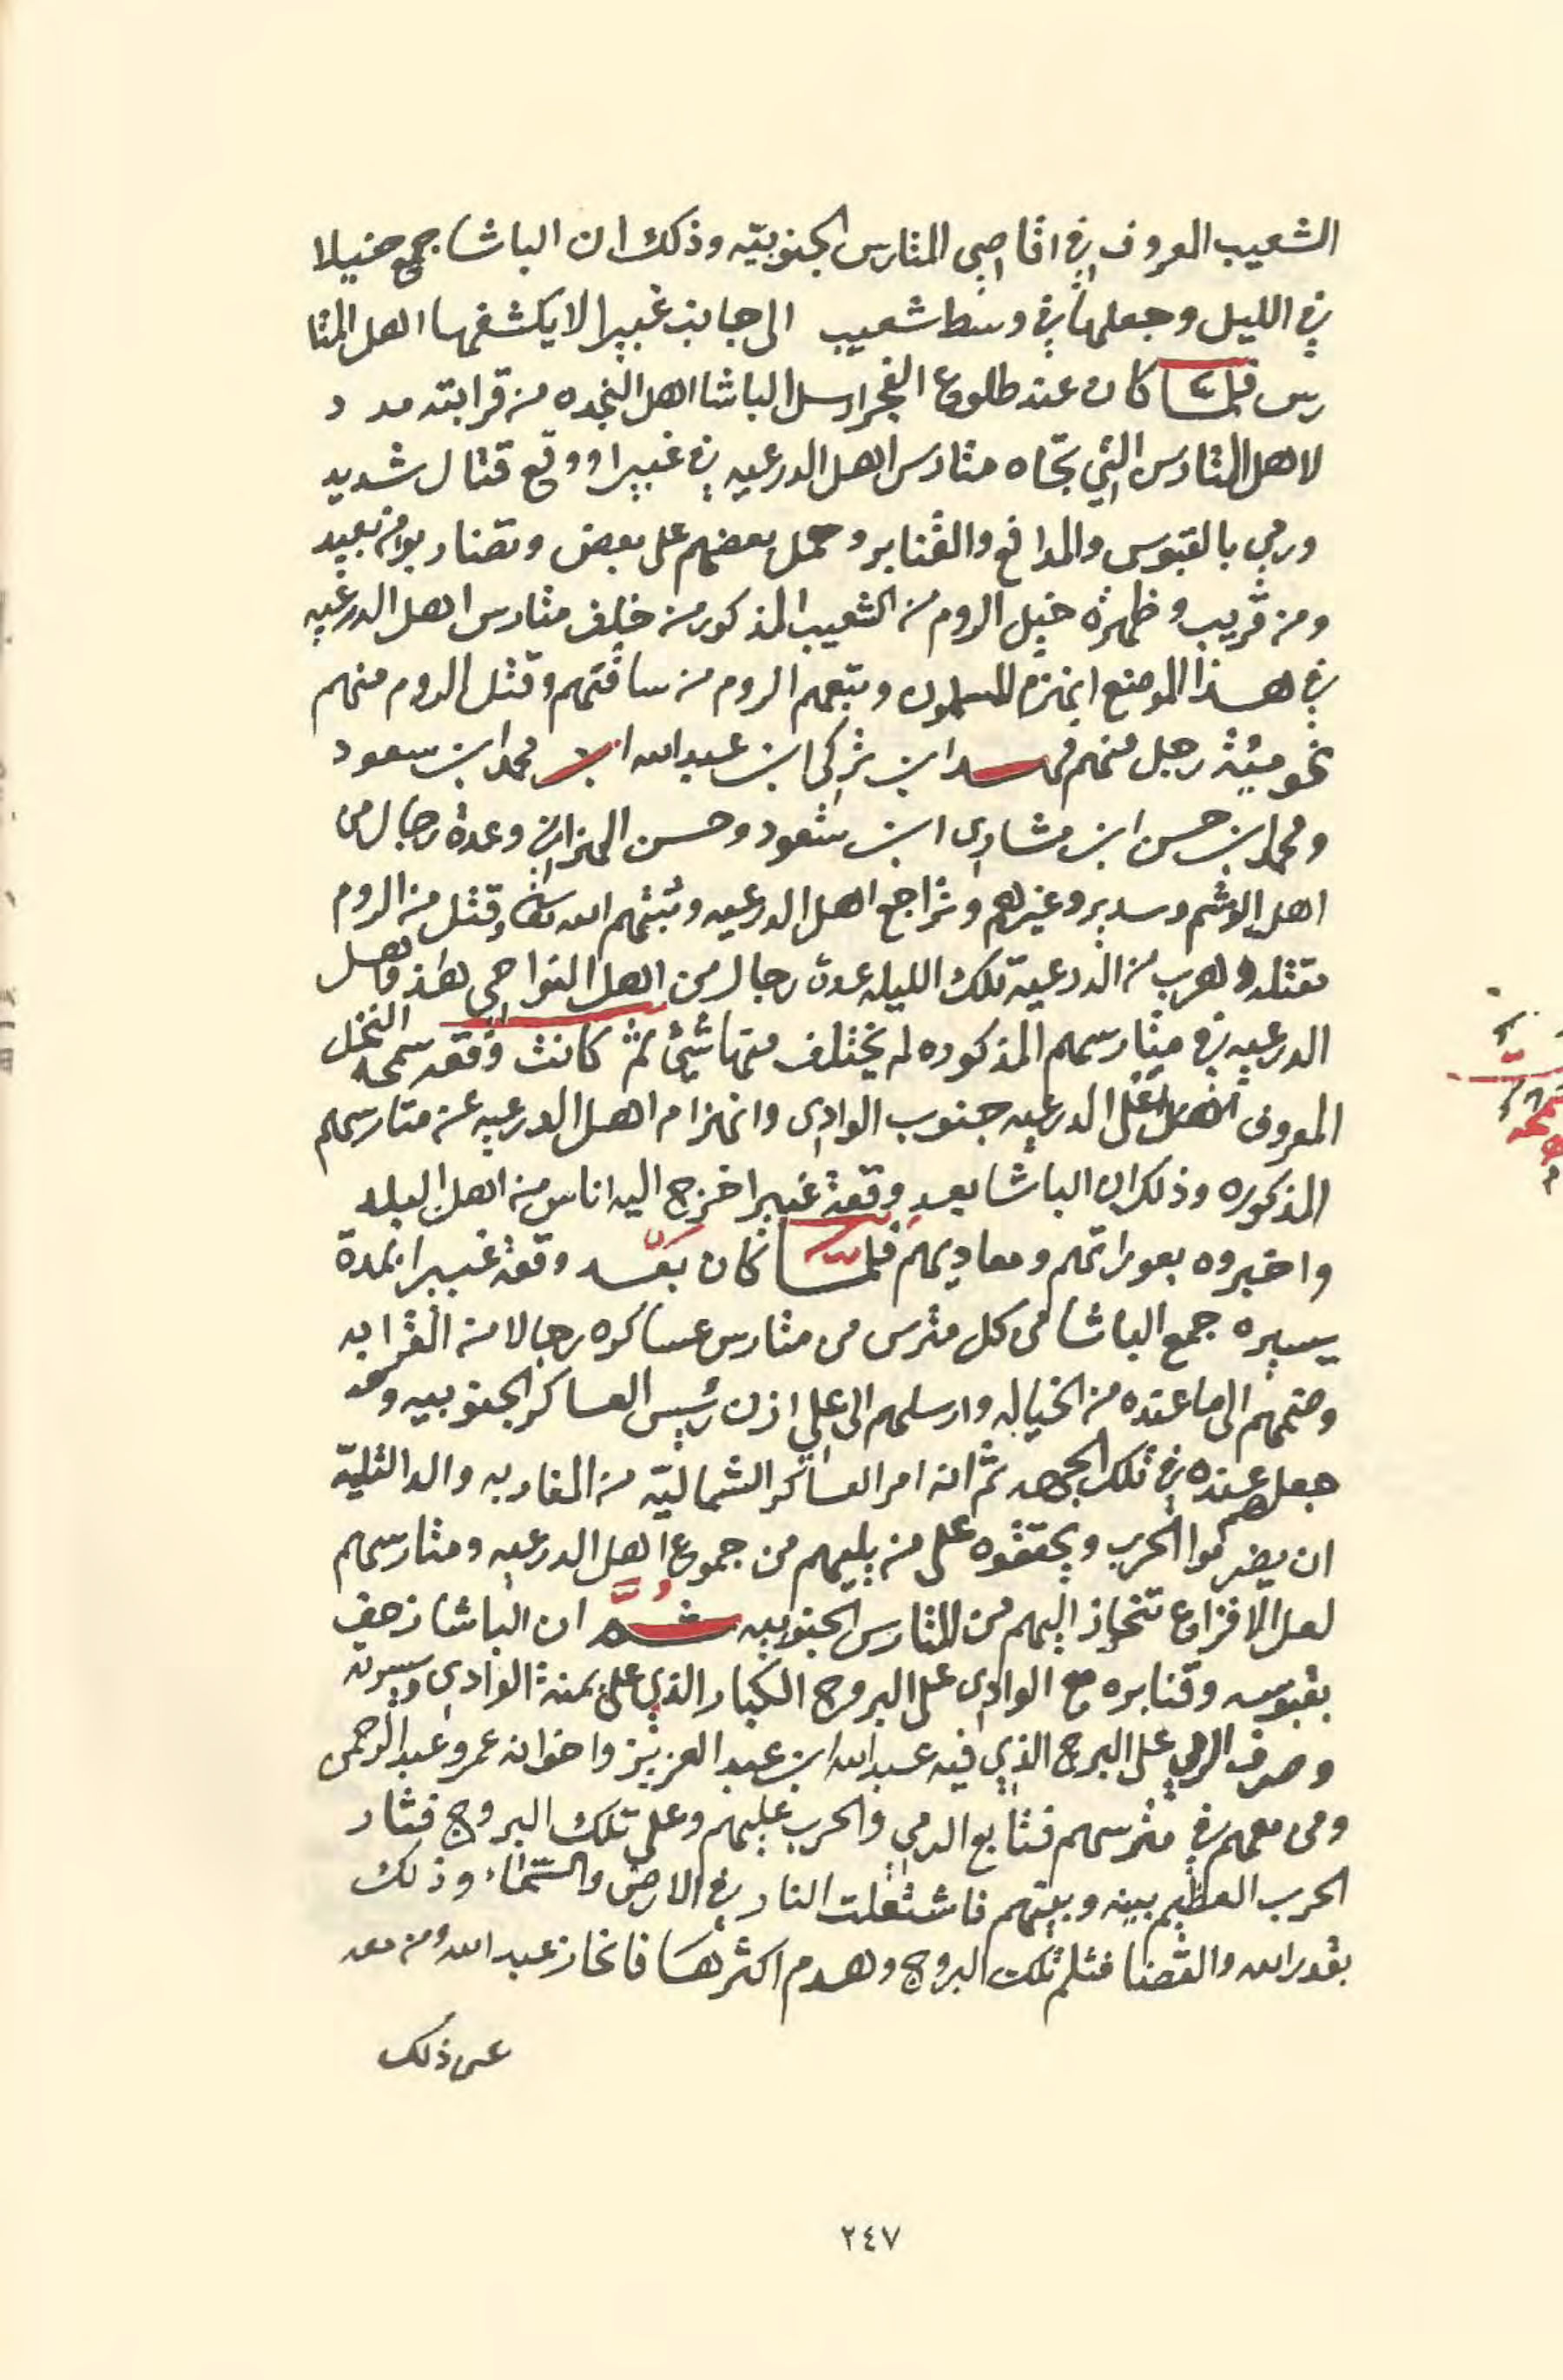 الشعيب المعروف في اقاصي المتارس الجنوبيّه وذلك ان الباشا جمع خيلا
في الليل وجعلها في وسط شعيب الى جانب غبيرا لا يكشفها اهل المتا
رس فلمّا كان عند طلوع الفجر ارسل الباشا اهل النجده من قرابته مدد
لاهل المتارس التي تجاه متارس اهل الدرعيه في غبيرا ووقع قتال شديد
ورمي بالقبوس والمدافع والقنابر وحمل بعضهم على بعض وتضاربوا من بعيد
ومن قريب وظهرة خيل الروم من الشعيب المذكور من خلف متارس اهل الدرعيه
في هذا الموضع انهزم المسلمون وتبعهم الروم من ساقتهم وقتل الروم منهم
نحو ميّة رجل منهم فهد ابن تركي ابن عبدالله ابن محمد ابن سعود
ومحمد ابن حسن ابن مشاري ابن سعود وحسن الهزاني وعدة رجال من
اهل الوشم وسدير وغيرهم وتراجع اهل الدرعيه وثبتهم الله تعالى وقتل من الروم
مقتله وهرب من الدرعية تلك الليله عدة رجال من اهل النواحي هذا واهل
الدرعيه في متارسهم المذكوره لم يختلف منها شيّ ثم كانت وقعة سمحه النخل
المعروف اعلى الدرعيه جنوب الوادي وانهزام اهل الدرعيه عن متارسهم
المذكوره وذلك ان الباشا بعد وقعة غبيرا خرج اليه اناس من اهل البلد
واخبروه بعوراتهم ومعاديهم فلمّا كان بعد وقعة غبيرا بمدة
يسيره جمع الباشا من كل مترس من متارس عساكره رجالا من القرابه
وضمهم الى ما عنده من الخياله وارسلهم الى علي ازن رئيس العساكر الجنوبيه وقد
جعلهم عنده في تلك الجهه ثم انه امر العساكر الشماليّه من المغاربه والدالتليّه
ان يضرموا الحرب ويحققوه على من يليهم من جموع اهل الدرعيه ومتارسهم
لعل الافزاع تنحاز اليهم من المتارس الجنوبيه ثُمَّ ان الباشا زحف
بقبوسه وقنابره مع الوادي على البروج الكبار الذي على يمنة الوادي ويسرته
وصرف الرمي على البرج الذي فيه عبدالله ابن عبدالعزيز واخوانه عمر وعبدالرحمن
ومن معهم في مترسهم فتتابع الرمي والحرب عليهم وعلى تلك البروج فثار
الحرب العظيم بينه وبينهم فاشتعلت النار في الارض والسّماء وذلك
بقدر الله والقضا فثلم تلك البروج وهدم اكثرها فانحاز عبدالله ومن معه
عن ذلك
٢٤٧